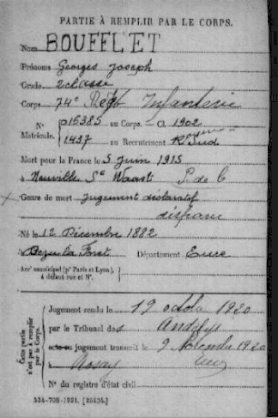 PARTIE À REMPLIR PAR LE CORPS.
Nom BOUFFLET
Prénoms Georges Joseph
Grade 2e classe
Corps 74e Régt Infanterie
N° 015385 au Corps. — Cl. 1902
Matricule. 1437 au Recrutement Rn Sud
Mort pour la France le 5 Juin 1915
à Neuville St Waast P. de C.
Genre de mort Jugement déclaratif
disparu
Né le 12 Décembre 1882
à Bezu la Forêt Département Eure
Arrt municipal (pr Paris et Lyon),
à défaut rue et N°.
Cette partie
n'est pas à remplir
par le Corps.
Jugement rendu le 19 octobre 1920
par le Tribunal des Andelys
jugement transcrit le 9 Novembre 1920
à
N° du registre d'état civil
534-708-1921. [26434.]